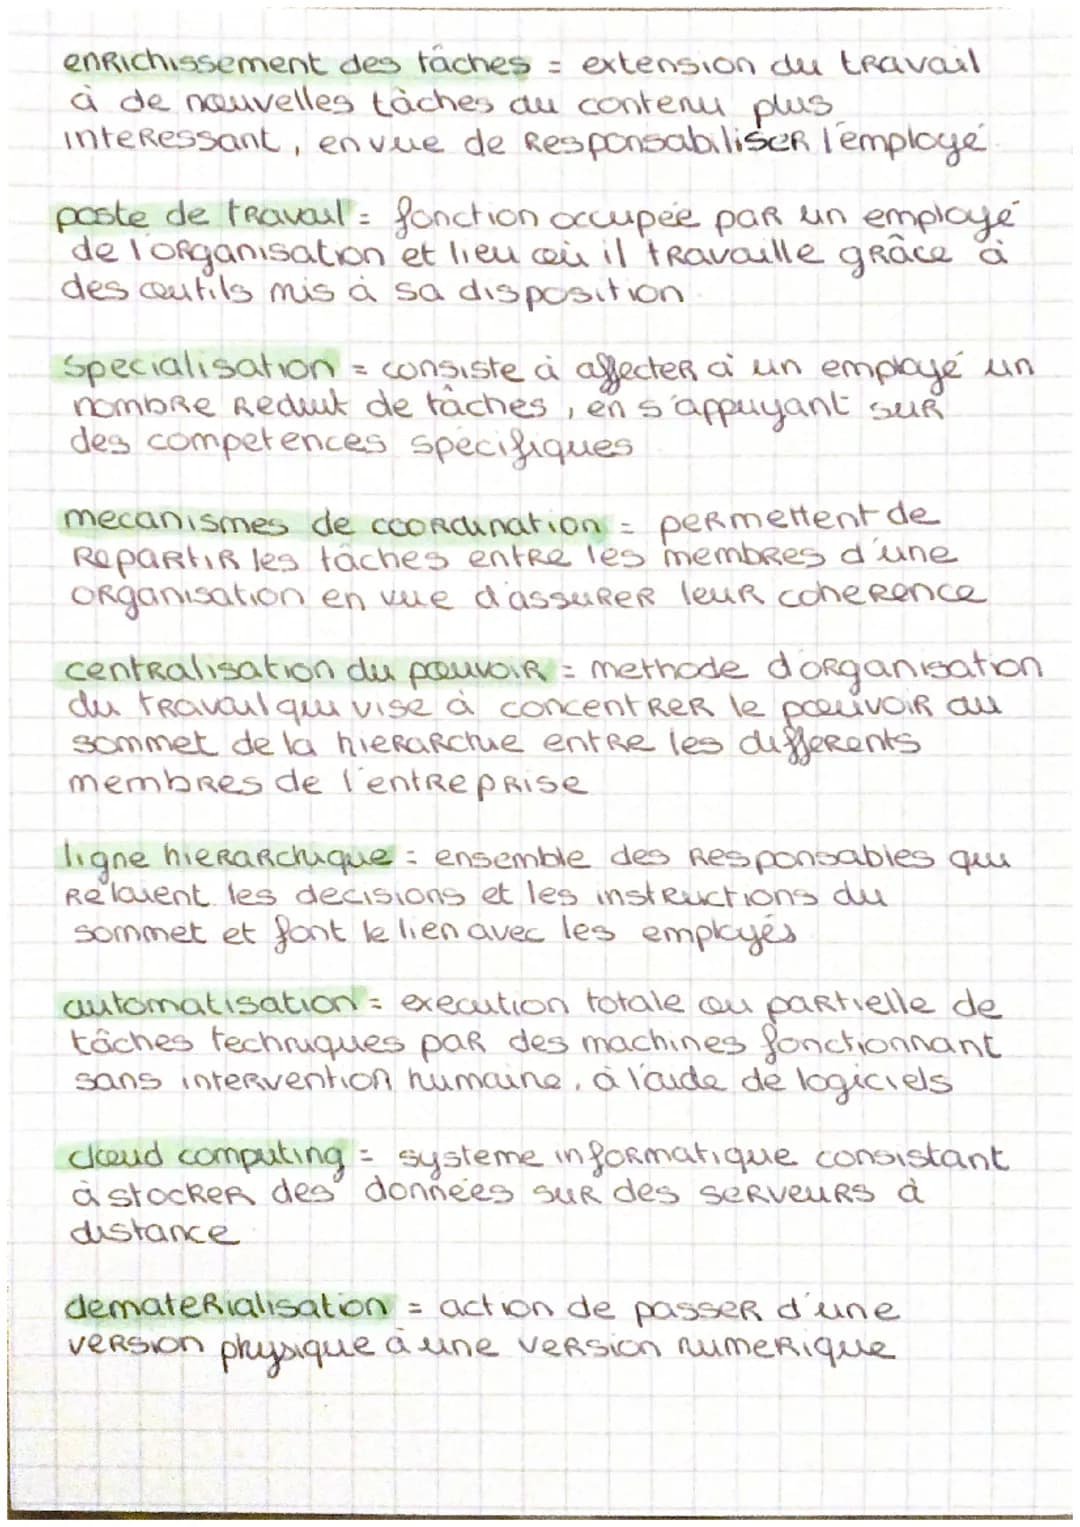 enrichissement des tâches = extension du travail
à de nouvelles tâches au contenu plus
interessant, en vue de responsabiliser l'employé.
poste de travail = fonction occupée par un employé
de l'organisation et lieu où il travaille grâce à
des outils mis à sa disposition.
specialisation = consiste à affecter à un employé un
nombre reduit de tâches, en s'appuyant sur
des competences spécifiques
mecanismes de coordination = permettent de
repartir les tâches entre les membres d'une
organisation en vue d'assurer leur coherence
centralisation du pouvoir = methode d'organisation
du travail qui vise à concentrer le pouvoir au
sommet de la hierarchie entre les differents
membres de l'entreprise
ligne hierarchique = ensemble des responsables qui
relaient les decisions et les instructions du
sommet et font le lien avec les employés
automatisation = execution totale ou partielle de
tâches techniques par des machines fonctionnant
sans intervention humaine, à l'aide de logiciels
cloud computing = systeme informatique consistant
à stocker des données sur des serveurs à
distance
dematerialisation = action de passer d'une
version physique à une version numerique